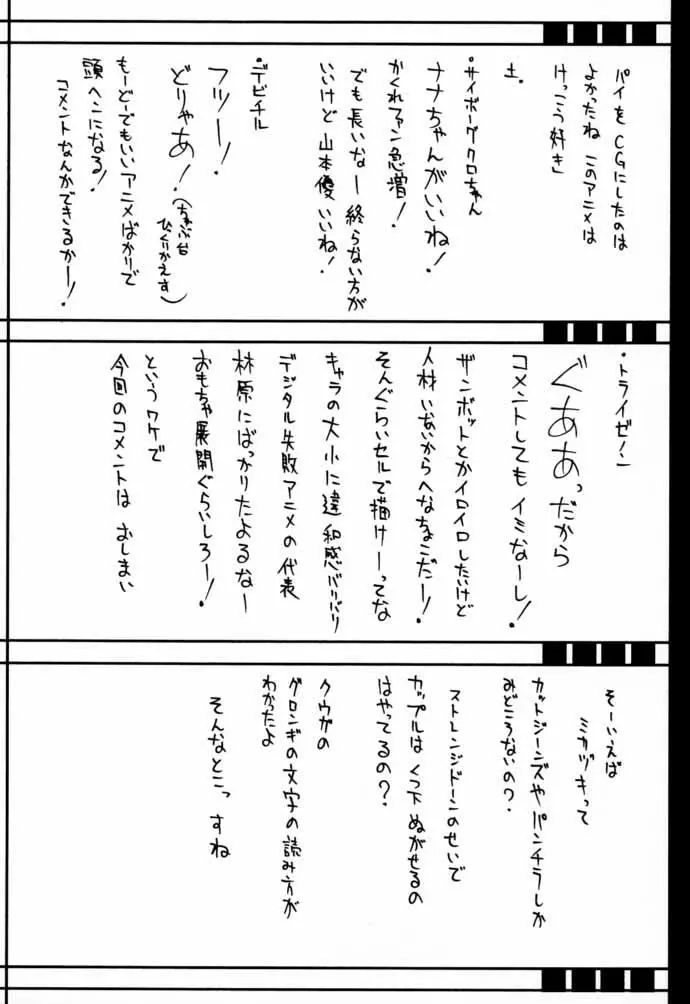 パイをCGにしたのは
よかったね このアニメは
けっこう好き」
土.
・サイボーグクロちゃん
ナナちゃんがいいね!
かくれファン急増!
でも長いなー 終らない方が
いいけど 山本優いいね!
・デビチル
フツー!
どりゃあ!(ちゃぶ台
ひくりかえす)
もーどーでもいいアニメばかりで
頭ヘンになる!
コメントなんかできるかー!
・トライゼノン
ぐああっだから
コメントしてもイミなーし!
ザンボットとかイロイロしたいけど
人材いないからへなちょこだー!
そんぐらいセルで描けーってな
キャラの大小に違和感バリバリ
デジタル失敗アニメの代表
林原にばっかりたよるなー
おもちゃ展開ぐらいしろー!
というワケで
今回のコメントは おしまい
そーいえば
ミカヅキって
カットジーンズや パンチラしか
みどころないの?
ストレンジドーンのせいで
カップルは くつ下 ぬがせるの
はやってるの?
クウガの
グロンギの文字の読み方が
わかったよ
そんなとこっすね